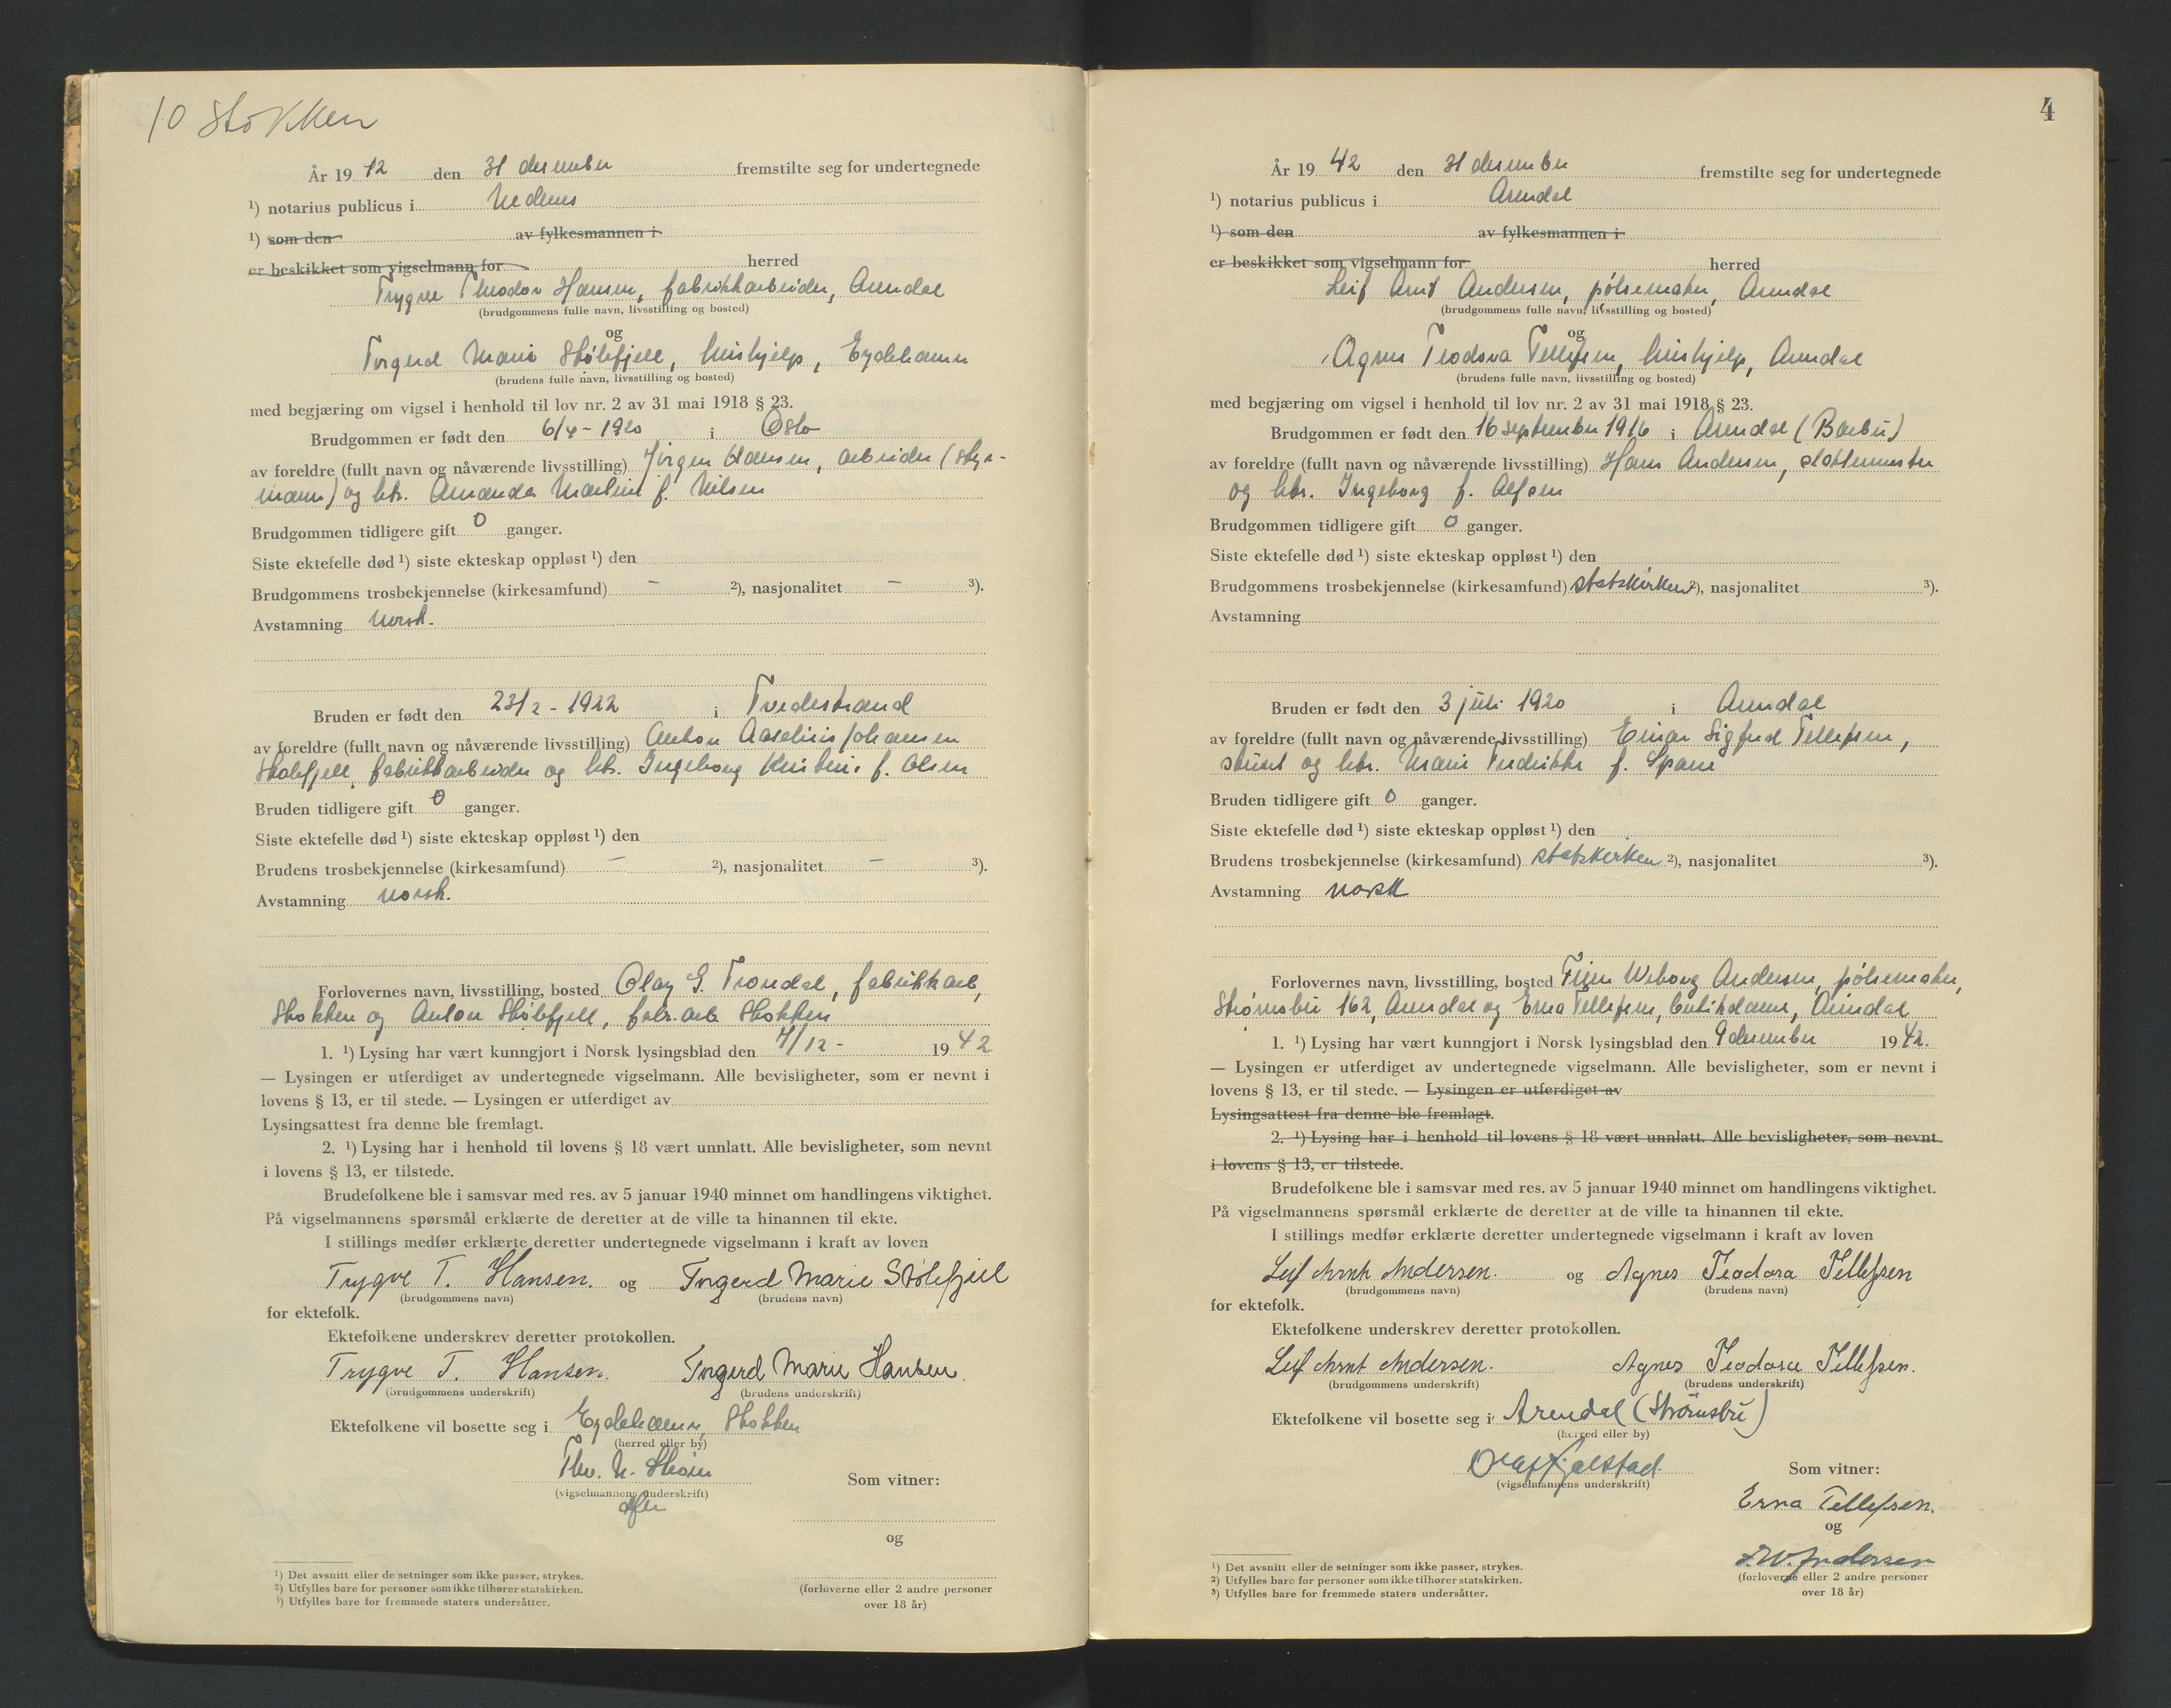 10 Stokken
År 19 42 den 31 desember fremstilte seg for undertegnede
¹) notarius publicus i Nedenes
¹) som den av fylkesmannen i
er beskikket som vigselmann for herred
Trygve Theodor Hansen, fabrikkarbeider, Arendal
(brudgommens fulle navn, livsstilling og bosted)
og
Torgerd Marie Stølefjell, hushjelp, Eydehavn
(brudens fulle navn, livsstilling og bosted)
med begjæring om vigsel i henhold til lov nr. 2 av 31 mai 1918 § 23.
Brudgommen er født den 6/4 - 1920 i Oslo
av foreldre (fullt navn og nåværende livsstilling) Jørgen Hansen, arbeider (styr-
mann) og htr. Amanda f. Nilsen
Brudgommen tidligere gift 0 ganger.
Siste ektefelle død ¹) siste ekteskap oppløst ¹) den
Brudgommens trosbekjennelse (kirkesamfund) – ²), nasjonalitet – ³).
Avstamning norsk.
Bruden er født den 23/2 - 1922 i Tvedestrand
av foreldre (fullt navn og nåværende livsstilling) Anton Johansen
Stølefjell, fabrikkarbeider og htr. Ingeborg Kristine f. Olsen
Bruden tidligere gift 0 ganger.
Siste ektefelle død ¹) siste ekteskap oppløst ¹) den
Brudens trosbekjennelse (kirkesamfund) – ²), nasjonalitet – ³).
Avstamning norsk.
Forlovernes navn, livsstilling, bosted Olav G. Trondal, fabrikkarb,
Stokken og Anton Stølefjell, fabr.arb Stokken
1. ¹) Lysing har vært kunngjort i Norsk lysingsblad den 4/12 - 19 42
— Lysingen er utferdiget av undertegnede vigselmann. Alle bevisligheter, som er nevnt i
lovens § 13, er til stede. — Lysingen er utferdiget av
Lysingsattest fra denne ble fremlagt.
2. ¹) Lysing har i henhold til lovens § 18 vært unnlatt. Alle bevisligheter, som nevnt
i lovens § 13, er tilstede.
Brudefolkene ble i samsvar med res. av 5 januar 1940 minnet om handlingens viktighet.
På vigselmannens spørsmål erklærte de deretter at de ville ta hinannen til ekte.
I stillings medfør erklærte deretter undertegnede vigselmann i kraft av loven
Trygve T. Hansen. og Torgerd Marie Stølefjell
(brudgommens navn) (brudens navn)
for ektefolk.
Ektefolkene underskrev deretter protokollen.
Trygve T. Hansen. Torgerd Marie Hansen.
(brudgommens underskrift) (brudens underskrift)
Ektefolkene vil bosette seg i Eydehavn, Stokken
(herred eller by)
Som vitner:
(vigselmannens underskrift)
og
¹) Det avsnitt eller de setninger som ikke passer, strykes.
²) Utfylles bare for personer som ikke tilhører statskirken.
³) Utfylles bare for fremmede staters undersåtter.
(forloverne eller 2 andre personer
over 18 år)
4
År 19 42 den 31 desember fremstilte seg for undertegnede
¹) notarius publicus i Arendal
¹) som den av fylkesmannen i
er beskikket som vigselmann for herred
Leif Arnt Andersen, pølsemaker, Arendal
(brudgommens fulle navn, livsstilling og bosted)
og
Agnes Teodora Tellefsen, hushjelp, Arendal
(brudens fulle navn, livsstilling og bosted)
med begjæring om vigsel i henhold til lov nr. 2 av 31 mai 1918 § 23.
Brudgommen er født den 16 september 1916 i Arendal (Barbu)
av foreldre (fullt navn og nåværende livsstilling) Hans Andersen, slaktemester
og htr. Ingeborg f. Alfsen
Brudgommen tidligere gift 0 ganger.
Siste ektefelle død ¹) siste ekteskap oppløst ¹) den
Brudgommens trosbekjennelse (kirkesamfund) statskirken ²), nasjonalitet ³).
Avstamning
Bruden er født den 3 juli 1920 i Arendal
av foreldre (fullt navn og nåværende livsstilling) Einar Sigfred Tellefsen,
stuert og htr. Marie Fredrikke f. Spare
Bruden tidligere gift 0 ganger.
Siste ektefelle død ¹) siste ekteskap oppløst ¹) den
Brudens trosbekjennelse (kirkesamfund) statskirken ²), nasjonalitet ³).
Avstamning norsk
Forlovernes navn, livsstilling, bosted Finn Wiborg Andersen, pølsemaker,
Strømsbu 162, Arendal og Erna Tellefsen, butikkdame, Arendal
1. ¹) Lysing har vært kunngjort i Norsk lysingsblad den 9 desember 19 42.
— Lysingen er utferdiget av undertegnede vigselmann. Alle bevisligheter, som er nevnt i
lovens § 13, er til stede. — Lysingen er utferdiget av
Lysingsattest fra denne ble fremlagt.
2. ¹) Lysing har i henhold til lovens § 18 vært unnlatt. Alle bevisligheter, som nevnt
i lovens § 13, er tilstede.
Brudefolkene ble i samsvar med res. av 5 januar 1940 minnet om handlingens viktighet.
På vigselmannens spørsmål erklærte de deretter at de ville ta hinannen til ekte.
I stillings medfør erklærte deretter undertegnede vigselmann i kraft av loven
Leif Arnt Andersen. og Agnes Teodora Tellefsen
(brudgommens navn) (brudens navn)
for ektefolk.
Ektefolkene underskrev deretter protokollen.
Leif Arnt Andersen. Agnes Teodora Tellefsen.
(brudgommens underskrift) (brudens underskrift)
Ektefolkene vil bosette seg i Arendal (Strømsbu)
(herred eller by)
Olaf Fjalstad
Som vitner:
(vigselmannens underskrift)
Erna Tellefsen.
og
F.W. Andersen
¹) Det avsnitt eller de setninger som ikke passer, strykes.
²) Utfylles bare for personer som ikke tilhører statskirken.
³) Utfylles bare for fremmede staters undersåtter.
(forloverne eller 2 andre personer
over 18 år)